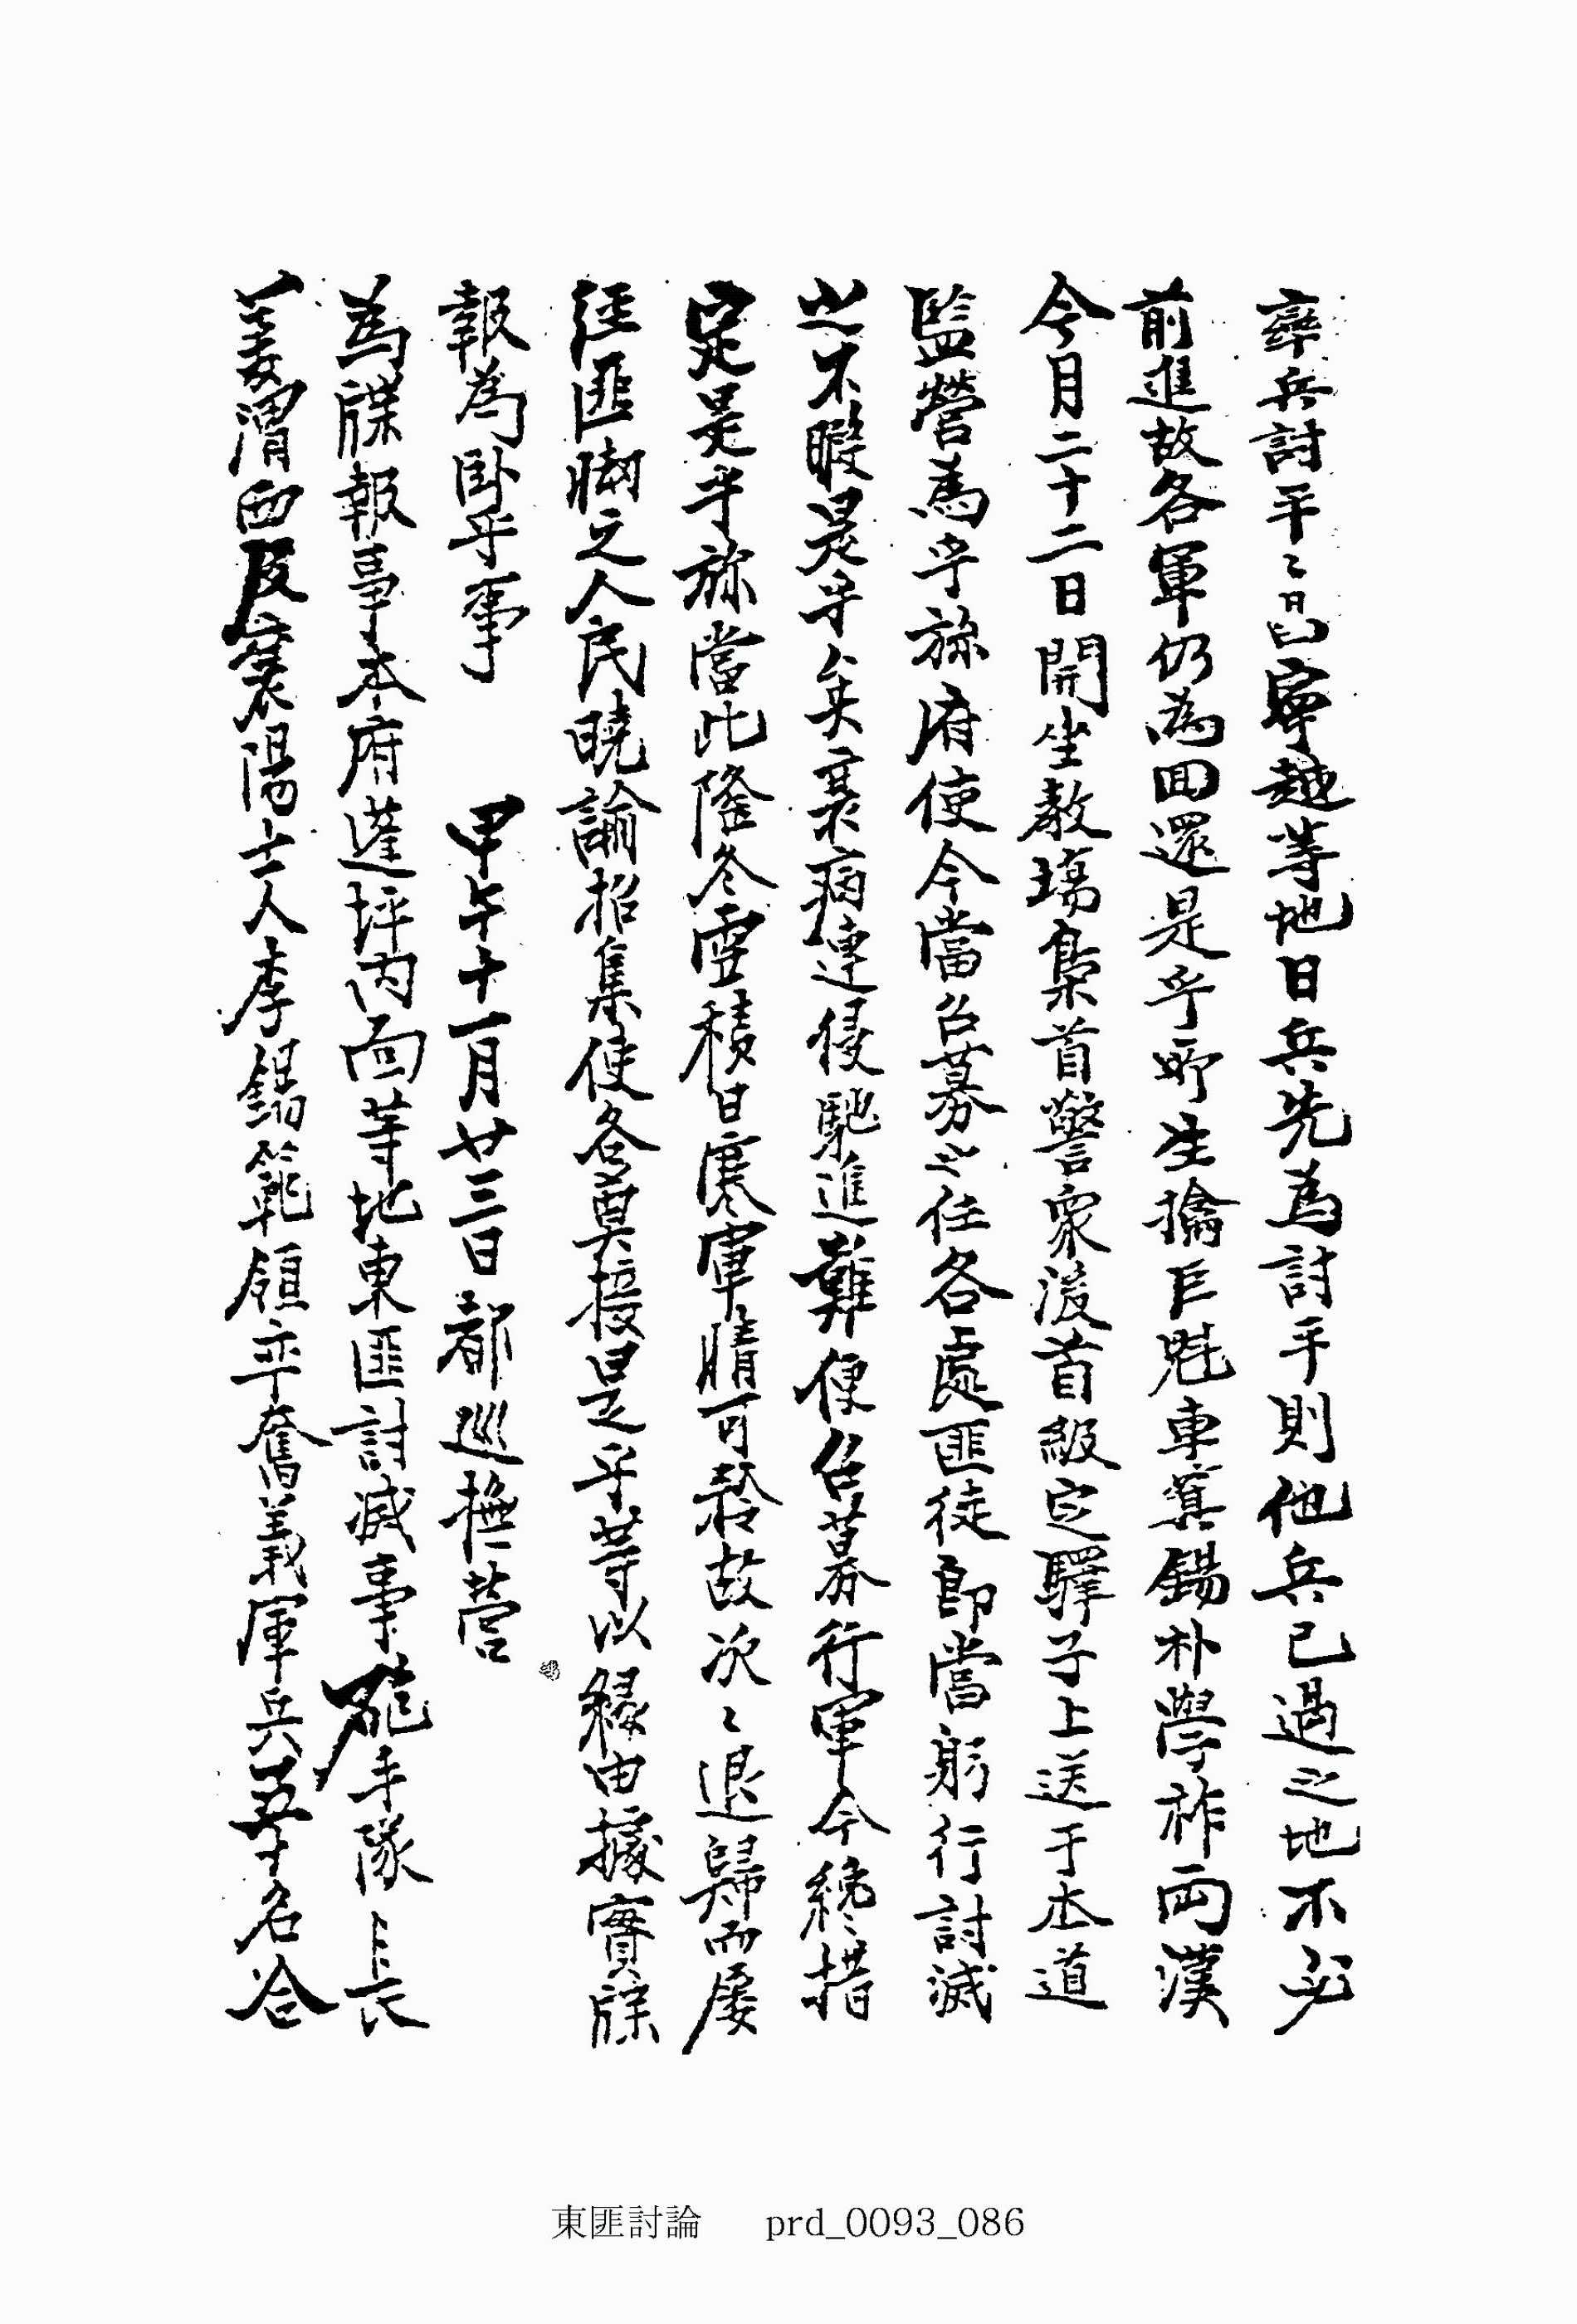 率兵討平平昌寧越等地日兵先爲討平則他兵已過之地不必
前進故各軍仍為回還是乎所生擒巨魁車箕錫朴學祚両漢
今月二十二日開坐敎塲梟首警衆後首級定驛子上送于本道
監營為乎旀府使今當召募之任各處匪徒即當躬行討滅
之不暇是乎矣衰病連侵馳進難便召募行軍今纔措
定是乎旀當此隆冬雪積日寒軍情可矜故次次退歸而屡
經匪擾之人民曉諭招集使各奠接是乎等以緣由據實牒
報為卧乎事 甲午十一月廿三日 都巡撫營
為牒報事本府蓬坪內面等地東匪討滅事砲手隊隊長
姜渭西及襄陽士人李錫範領率奮義軍兵五十名合
東匪討論 prd_0093_086